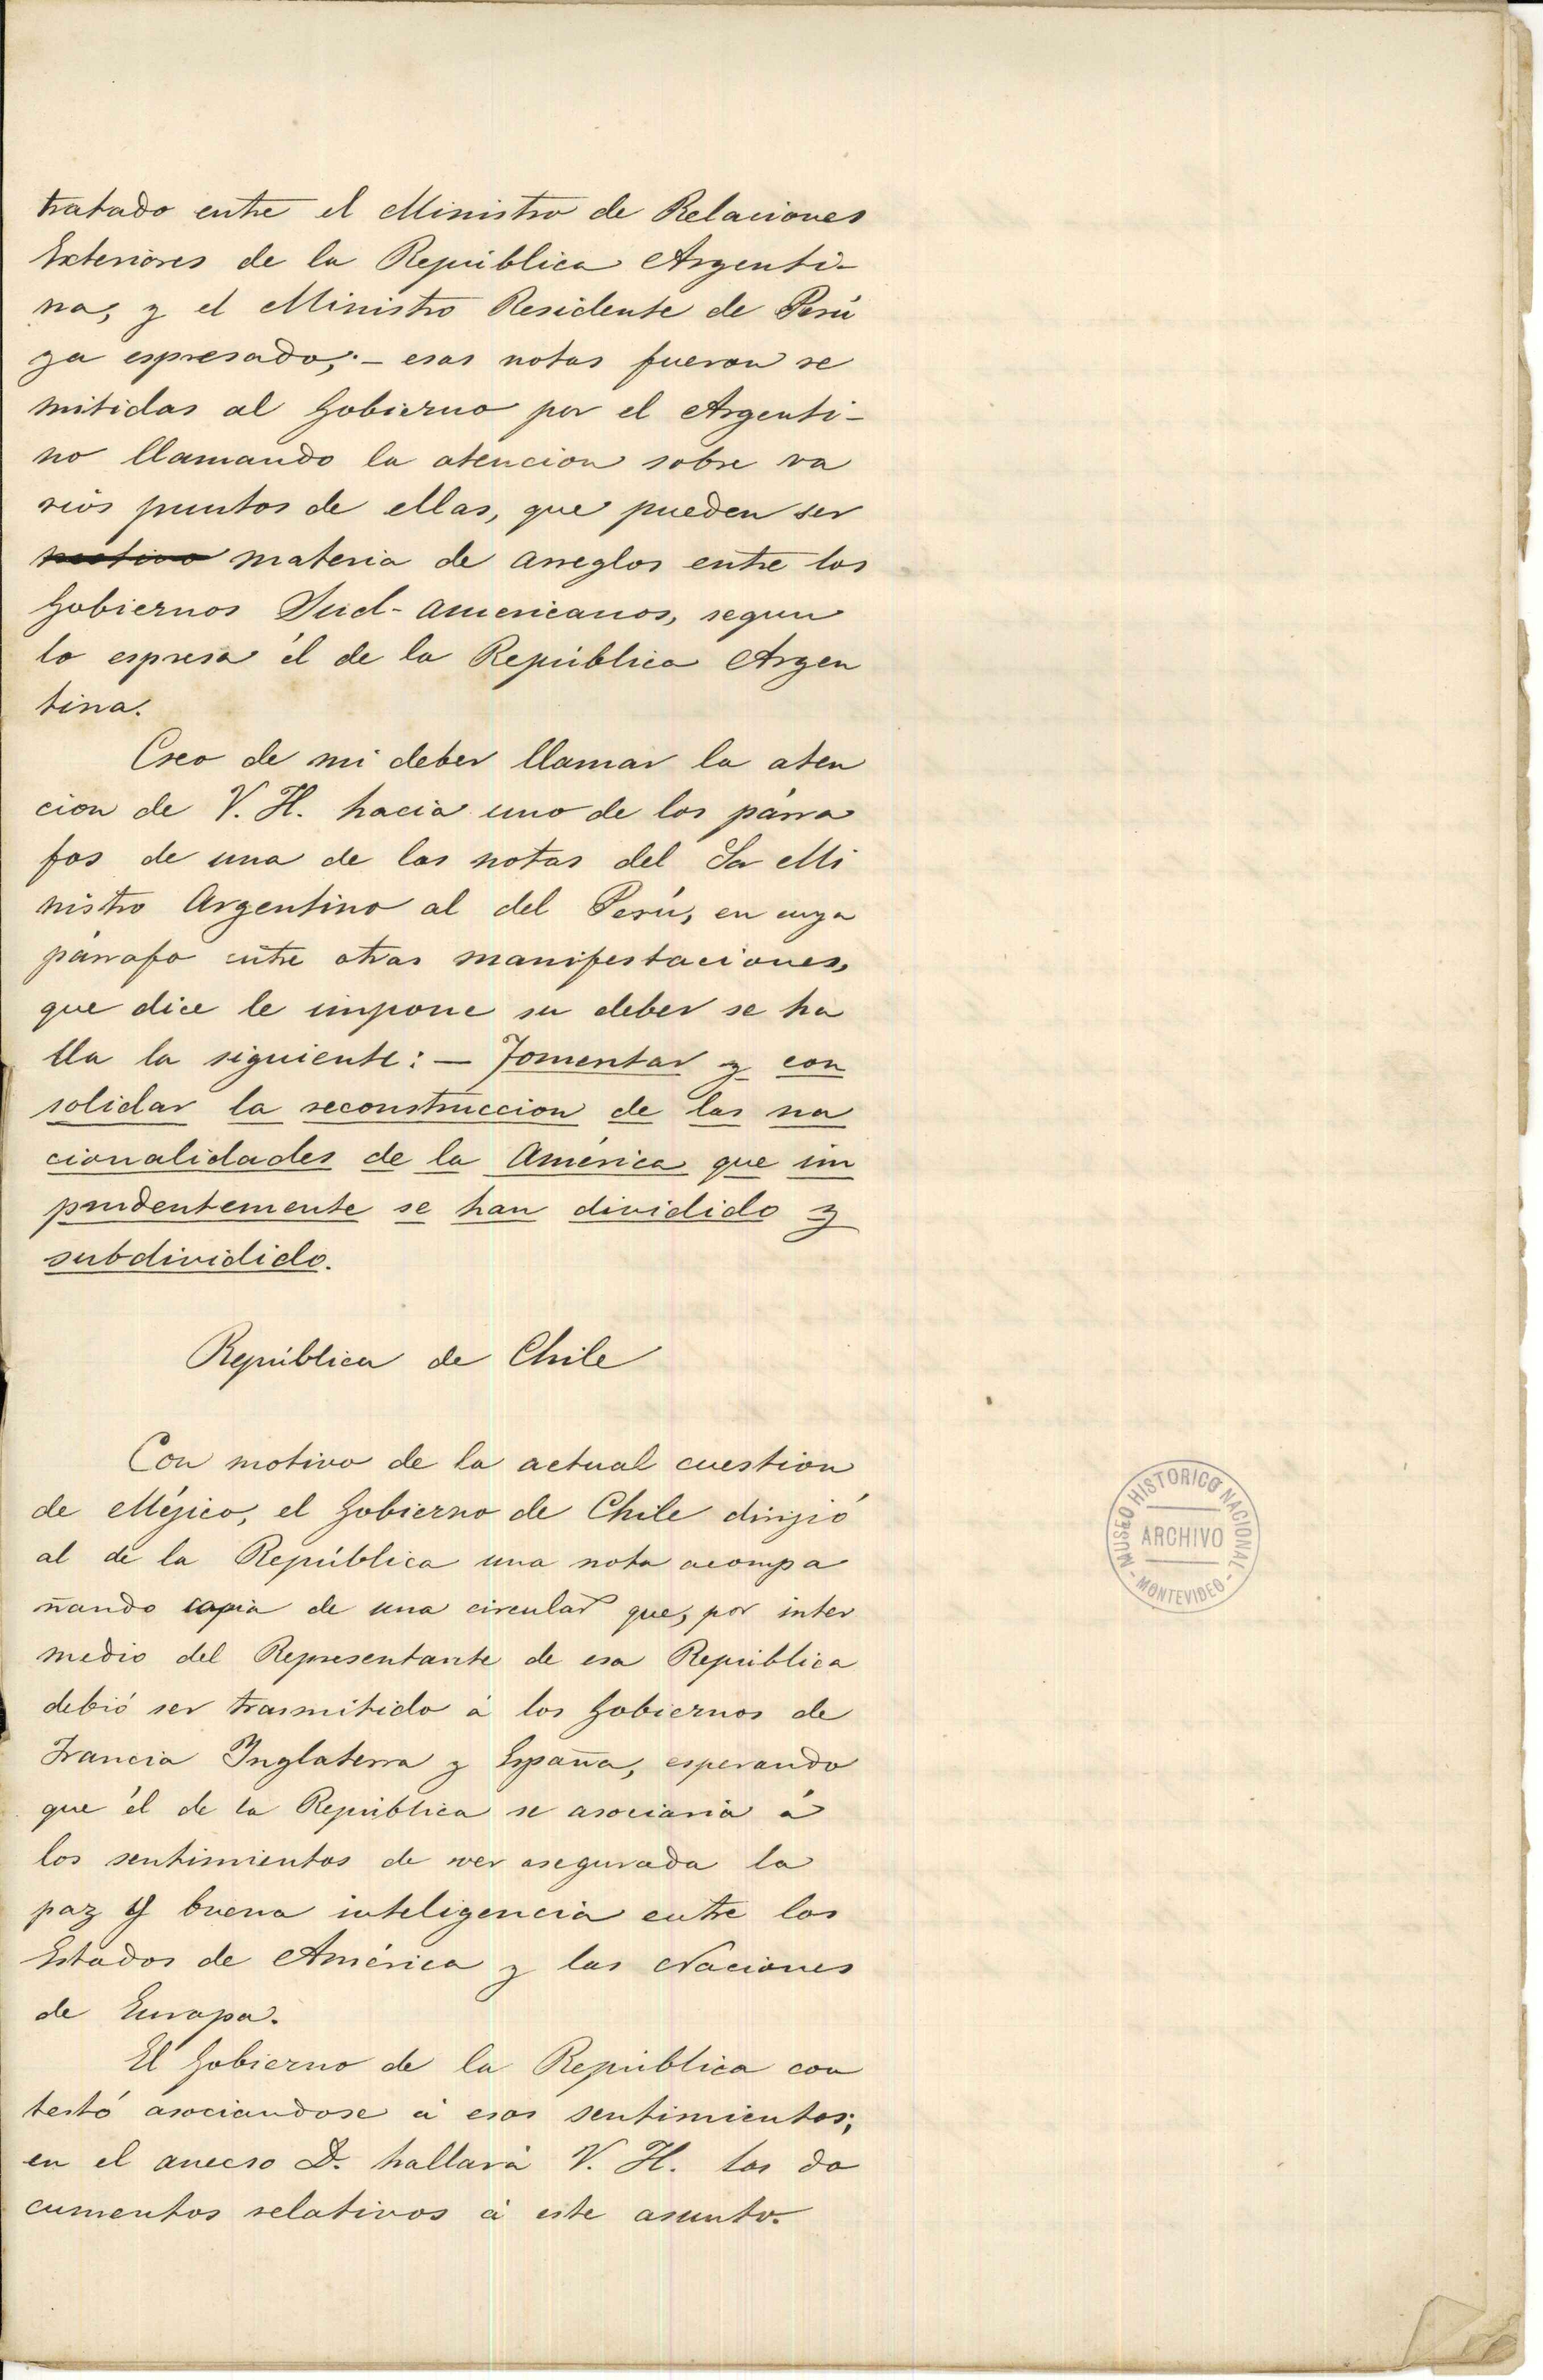 tratado entre el Ministro de Relaciones
Exteriores de la República Argenti-
na, y el Ministro Residente de Perú
ya espresado; - esas notas fueron re
mitidas al Gobierno por el Argenti-
no llamando la atencion sobre va
rios puntos de ellas, que pueden ser
motivo materia de arreglos entre los
Gobiernos Sud-americanos, segun
lo espresa él de la República Argen
tina.
Creo de mi deber llamar la aten
cion de V. H. hacia uno de los párra
fos de una de las notas del Sr Mi
nistro Argentino al del Perú, en cuyo
párrafo entre otras manifestaciones,
que dice le impone su deber se ha
lla la siguiente: — Fomentar y con
solidar la reconstruccion de las na
cionalidades de la América que im
prudentemente se han dividido y
subdividido.
República de Chile
Con motivo de la actual cuestion
de Méjico, el Gobierno de Chile dirijió
al de la República una nota acompa
ñando copia de una circular que, por inter
medio del Representante de esa República
debió ser trasmitido á los Gobiernos de
Francia Inglaterra y España, esperando
que él de la República se asociaria á
los sentimientos de ver asegurada la
paz y buena inteligencia entre los
Estados de América y las Naciones
de Europa.
El Gobierno de la República con
testó asociandose á esos sentimientos;
en el anecso D. hallará V. H. los do
cumentos relativos á este asunto.
MUSEO HISTORICO NACIONAL
ARCHIVO
- MONTEVIDEO -